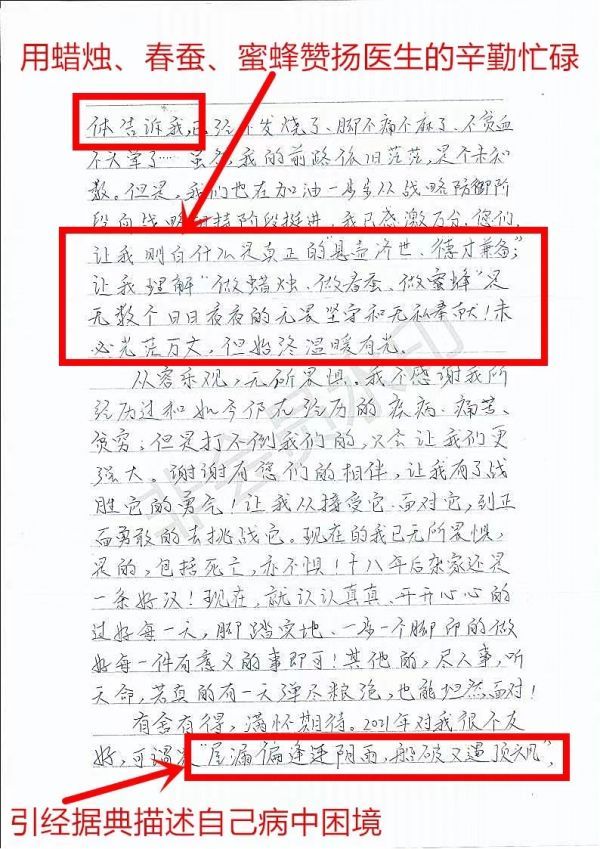 用蜡烛、春蚕、蜜蜂赞扬医生的辛勤忙碌
体告诉我,已经不发烧了、脚不痛不麻了、不贫血
不头晕了…… 虽然,我的前路依旧茫茫,是个未知
数。但是,我们也在加油一步步从战略防御阶
段向战略相持阶段挺进,我已感激万分。您们,
让我明白什么是真正的“悬壶济世、德才兼备,”
让我理解“做蜡烛、做春蚕、做蜜蜂”是
无数个日日夜夜的无畏坚守和无私奉献!未
必光茫万丈,但始终温暖有光。
从容乐观,无所畏惧。我不感谢我所
经历过和如今仍在经历的疾病、痛苦、
贫穷,但是打不倒我们的,只会让我们更
强大。谢谢有您们的相伴,让我有了战
胜它的勇气!让我从接受它、面对它,到正
面勇敢的去挑战它。现在的我已无所畏惧,
是的,包括死亡,亦不惧!十八年后杂家还是
一条好汉!现在,就认认真真、开开心心的
过好每一天,脚踏实地、一步一个脚印的做
好每一件有意义的事即可!其他的,尽人事,听
天命,若真的有一天弹尽粮绝,也能坦然面对!
有舍有得,满怀期待。2021年对我很不友
好,可谓是“屋漏偏逢连阴雨,船破又遇顶头风”,
引经据典描述自己病中困境
非会员水印